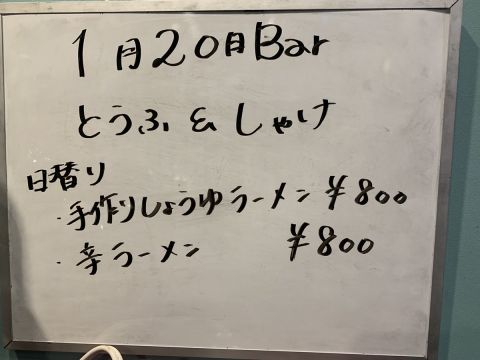 1月20日Bar
とうふ & しゃけ
日替り
・手作りしょうゆラーメン ¥800
・辛ラーメン ¥800